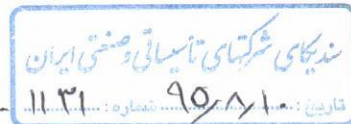 سندیکای شرکتهای تأسیساتی و صنعتی ایران
تاریخ: ۹۵/۸/۱۰ شماره: ۱۱۳۱ -